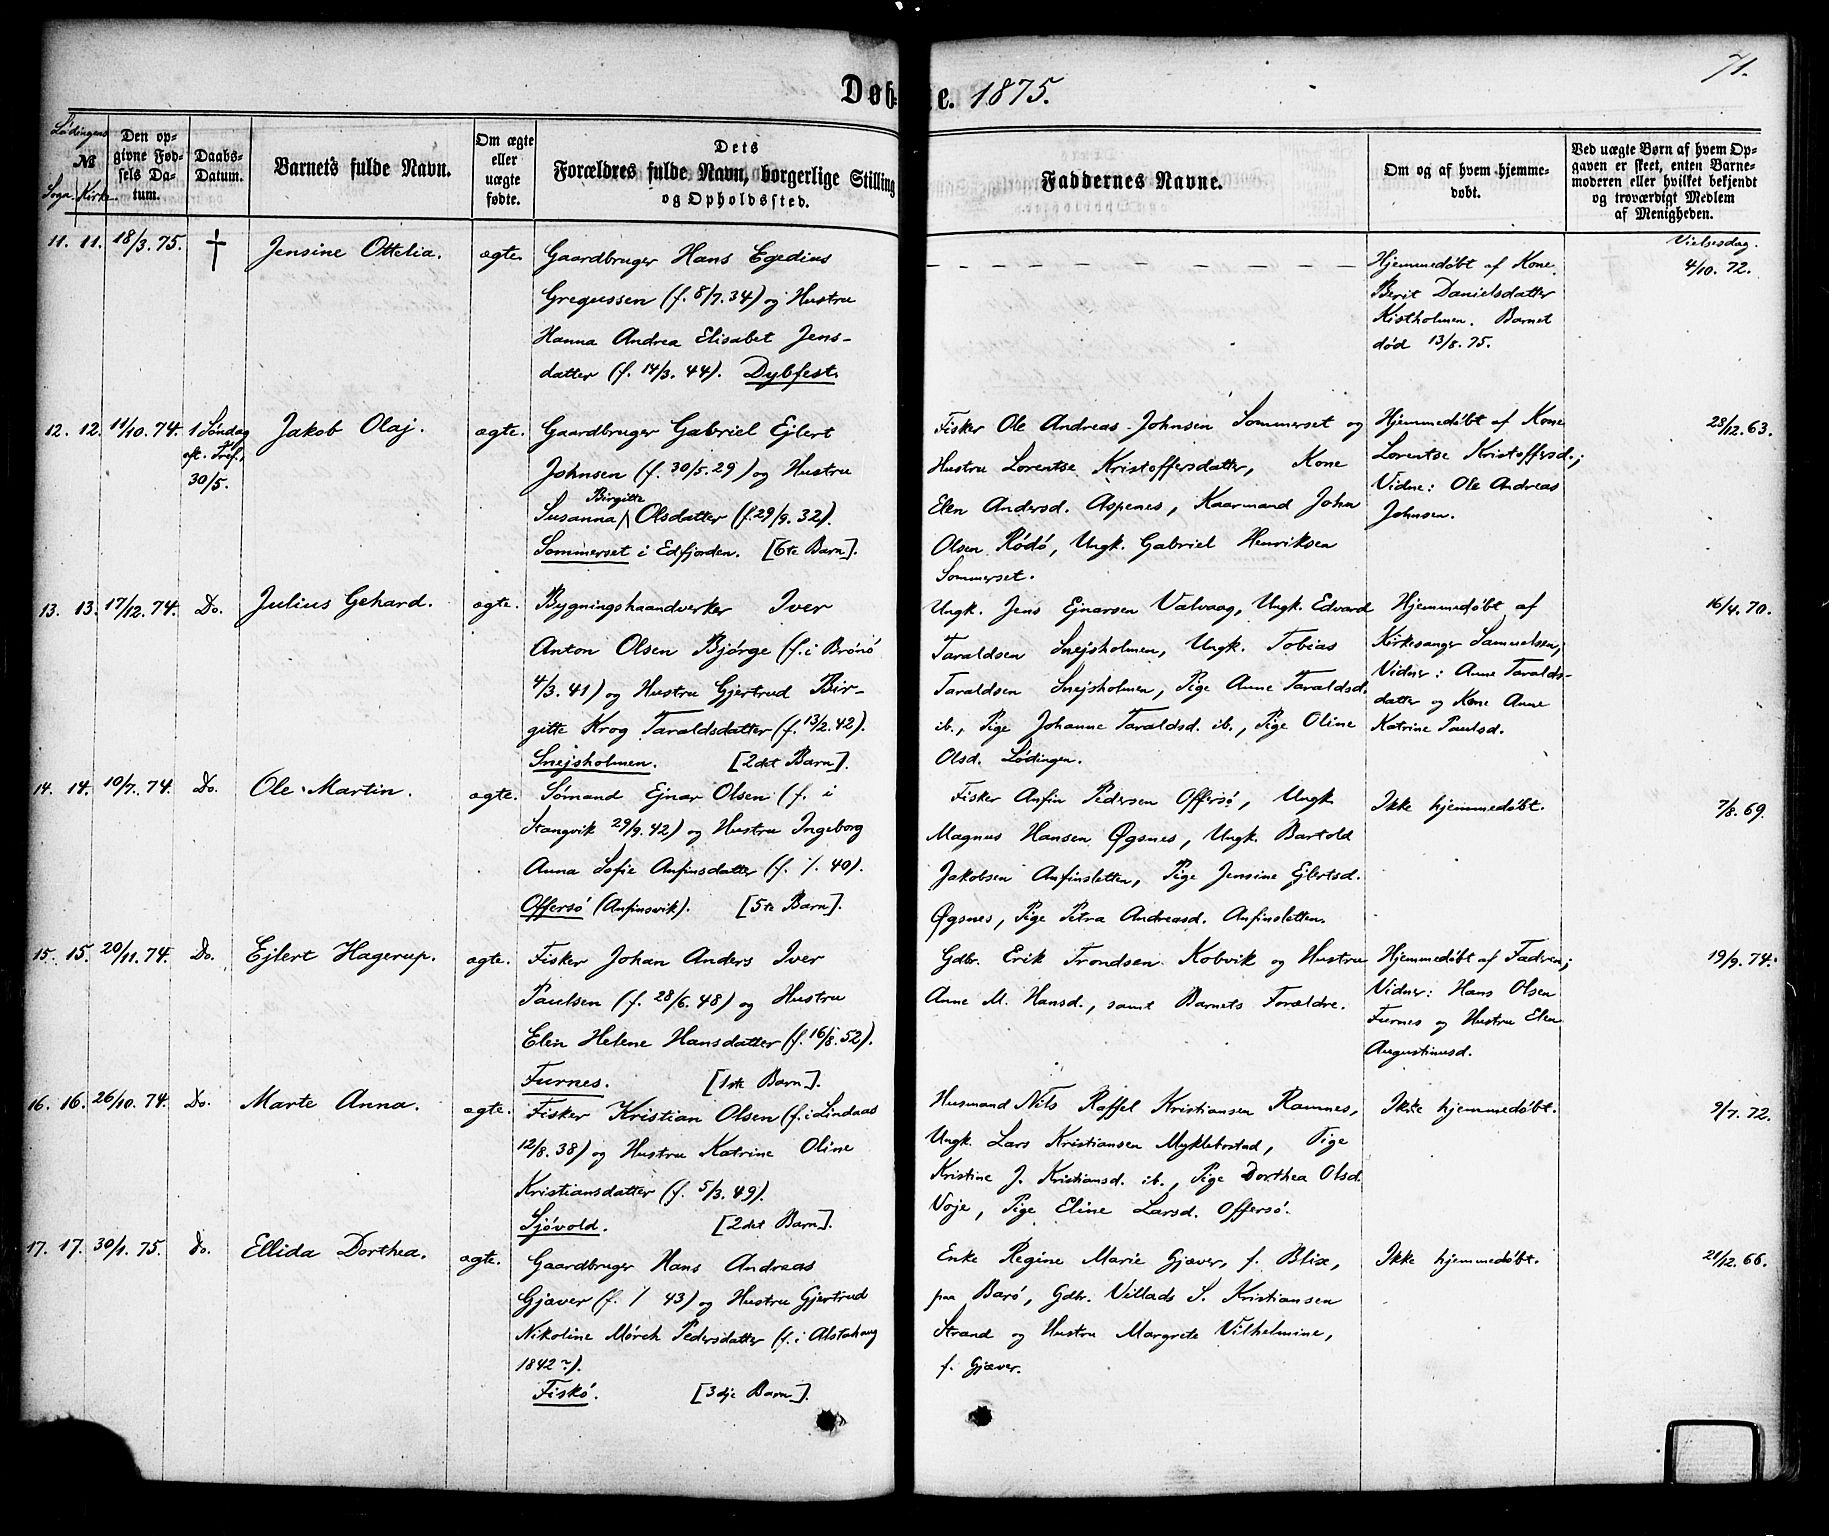 71.
Døbte. 1875.
Lødingens
№
Sogn. Kirke.
Den op-
givne Fød-
sels Da-
tum.
Daabs-
Datum.
Barnets fulde Navn.
Om ægte
eller
uægte
fødte.
Dets
Forældres fulde Navn, borgerlige Stilling
og Opholdssted.
Faddernes Navne.
Om og af hvem hjemme-
døbt.
Ved uægte Børn af hvem Op-
gaven er skeet, enten Barne-
moderen eller hvilket bekjendt
og troværdigt Medlem
af Menigheden.
11. 11. 18/3. 75. † Jensine Ottelia. ægte.
Gaardbruger Hans Egedius
Gregussen (f. 8/7. 34) og Hustru
Hanna Andrea Elisabet Jens-
datter (f. 14/3. 44). Dybfest.
Hjemmedøbt af Kone
Berit Danielsdatter
Kistholmen. Barnet
død 13/8. 75.
Vielsesdag.
4/10. 72.
12. 12. 11/10. 74. 1 Søndag
eft. Tref.,
30/5.
Jakob Olaj. ægte.
Gaardbruger Gabriel Ejlert
Johnsen (f. 30/5. 29) og Hustru
Birgitte
Susanna Olsdatter (f. 29/9. 32).
Sommerset i Edfjorden. [6te Barn].
Fisker Ole Andreas Johnsen Sommerset og
Hustru Lorentse Kristoffersdatter, Kone
Elen Andersd. Aspenes, Kaarmand John
Olsen Rødø, Ungk. Gabriel Henriksen
Sommerset.
Hjemmedøbt af Kone
Lorentse Kristoffersd.;
Vidne: Ole Andreas
Johnsen.
28/12. 63.
13. 13. 17/12. 74. Do. Julius Gehard. ægte.
Bygningshaandverker Iver
Anton Olsen Bjørge (f. i Brønø
4/3. 41) og Hustru Gjertrud Bir-
gitte Krog Taraldsdatter (f. 13/2. 42).
Snejsholmen. [2det Barn].
Ungk. Jens Ejnarsen Valvaag, Ungk. Edvard
Taraldsen Snejsholmen, Ungk. Tobias
Taraldsen Snejsholmen, Pige Anne Taraldsd.
ib., Pige Johanne Taraldsd. ib., Pige Oline
Olsd. Lødingen.
Hjemmedøbt af
Kirkesanger Samuelsen;
Vidner: Anne Taralds-
datter og Kone Anne
Katrine Paulsd.
16/4. 70.
14. 14. 10/7. 74. Do. Ole Martin. ægte.
Sømand Ejnar Olsen (f. i
Stangvik 29/9. 42) og Hustru Ingeborg
Anna Sofie Anfinsdatter (f. / 40).
Offersø (Anfinsvik). [5te Barn].
Fisker Anfin Pedersen Offersø, Ungk.
Magnus Hansen Øgsnes, Ungk. Bartold
Jakobsen Anfinsletten, Pige Jensine Ejlertsd.
Øgsnes, Pige Petra Andreasd. Anfinsletten.
Ikke hjemmedøbt.
7/8. 69.
15. 15. 20/11. 74. Do. Ejlert Hagerup. ægte.
Fisker Johan Anders Iver
Paulsen (f. 28/6. 48) og Hustru
Elen Helene Hansdatter (f. 16/8. 52).
Furnes. [1ste Barn].
Gdbr. Erik Trondsen Kobvik og Hustru
Anne M. Hansd., samt Barnets Forældre.
Hjemmedøbt af Fadren;
Vidner: Hans Olsen
Furnes og Hustru Elen
Augustinusd.
19/9. 74.
16. 16. 26/10. 74. Do. Marte Anna. ægte.
Fisker Kristian Olsen (f. i Lindaas
12/8. 38) og Hustru Katrine Oline
Kristiansdatter (f. 5/3. 49).
Sjøvold. [2det Barn].
Husmand Nils Raffel Kristiansen Ramnes,
Ungk. Lars Kristiansen Myklebostad, Pige
Kristine J. Kristiansd. ib., Pige Dorthea Olsd.
Voje, Pige Eline Larsd. Offersø.
Ikke hjemmedøbt.
9/7. 72.
17. 17. 30/1. 75. Do. Ellida Dorthea. ægte.
Gaardbruger Hans Andreas
Gjæver (f. / 43) og Hustru Gjertrud
Nikoline Mørch Pedersdatter (f. i Alstahaug
1842?).
Fiskø. [3dje Barn].
Enke Regine Marie Gjæver, f. Blix,
paa Barø, Gdbr. Villads S. Kristiansen
Strand og Hustru Margrete Vilhelmine,
f. Gjæver.
Ikke hjemmedøbt.
21/12. 66.